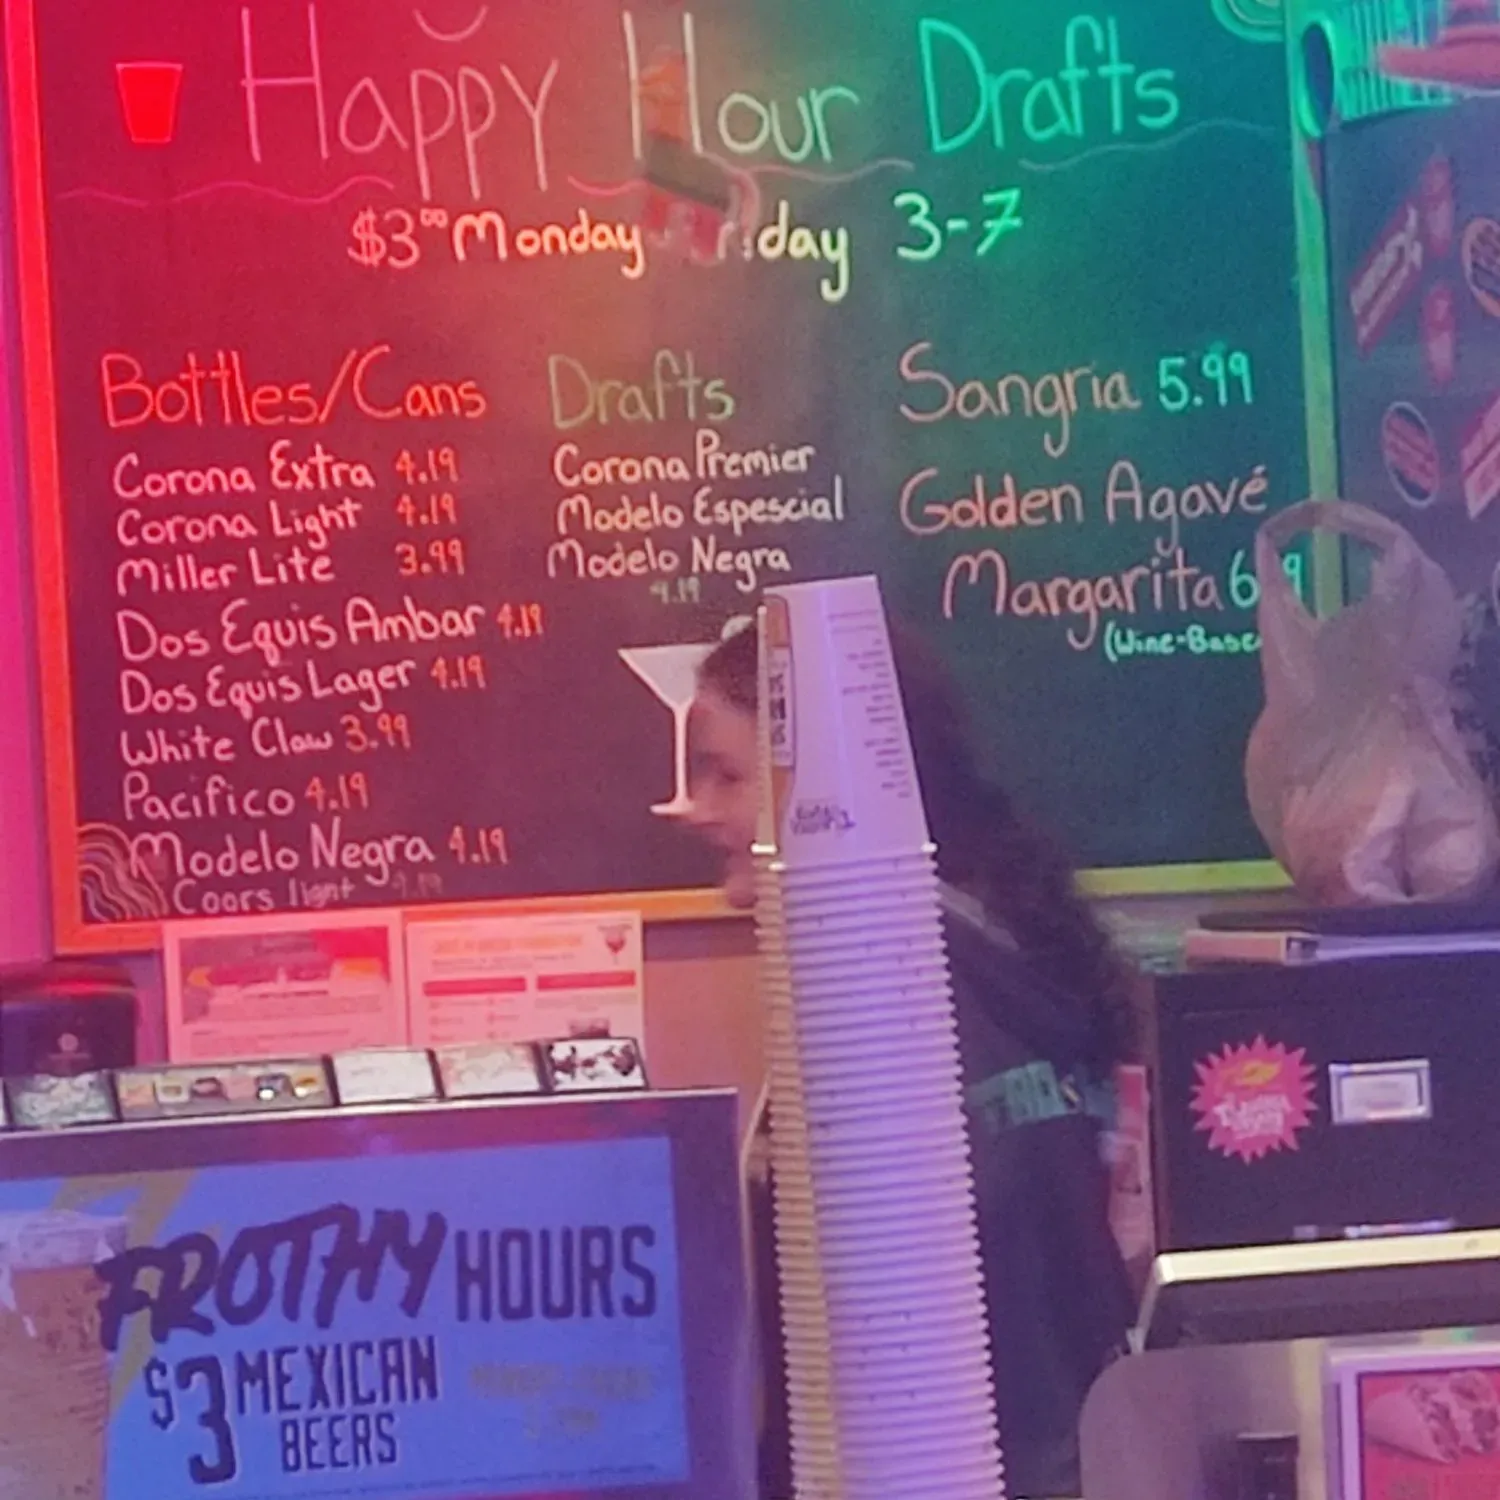 Happy Hour Drafts
$3⁰⁰ Monday Friday 3-7
Bottles/Cans
Corona Extra 4.19
Corona Light 4.19
Miller Lite 3.99
Dos Equis Ambar 4.19
Dos Equis Lager 4.19
White Claw 3.99
Pacifico 4.19
Modelo Negra 4.19
Coors light
Drafts
Corona Premier
Modelo Espescial
Modelo Negra
4.19
Sangria 5.99
Golden Agavé
Margarita
(Wine-Base
FROTHY HOURS
$3 MEXICAN
BEERS